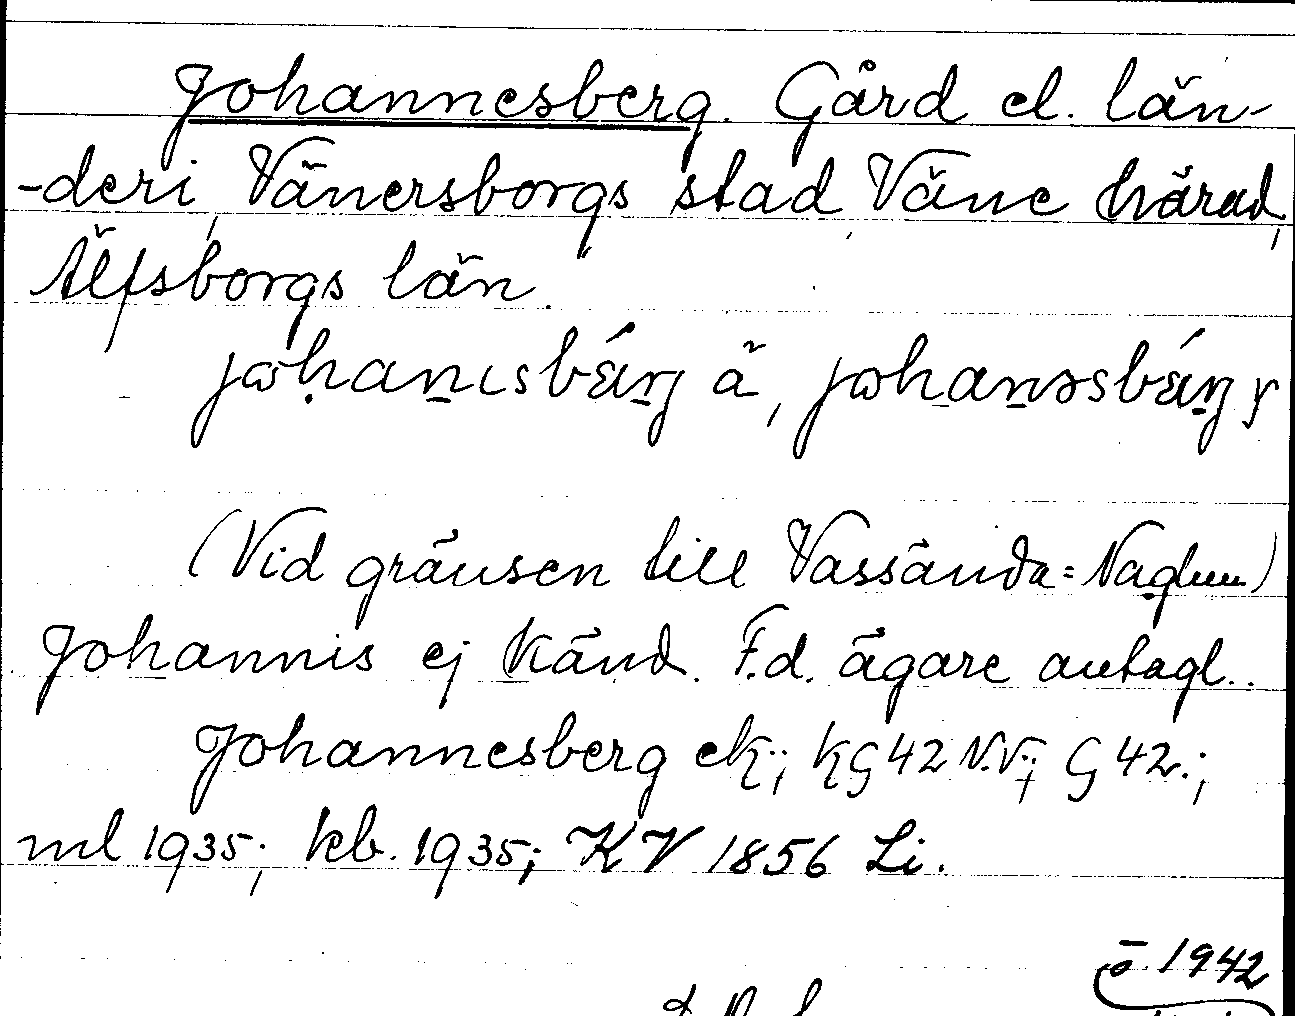 Johannesberg. Gård el. län-
-deri, Vänersborgs stad, Väne härad,
Älfsborgs län.
(Vid gränsen till Vassända=Naglum)
Johannis ej känd. F.d. ägare antagl..
Johannesberg ek.; kG 42 N.V.; G 42.;
ml 1935; kb. 1935; KV 1856 Li.
ō. 1942